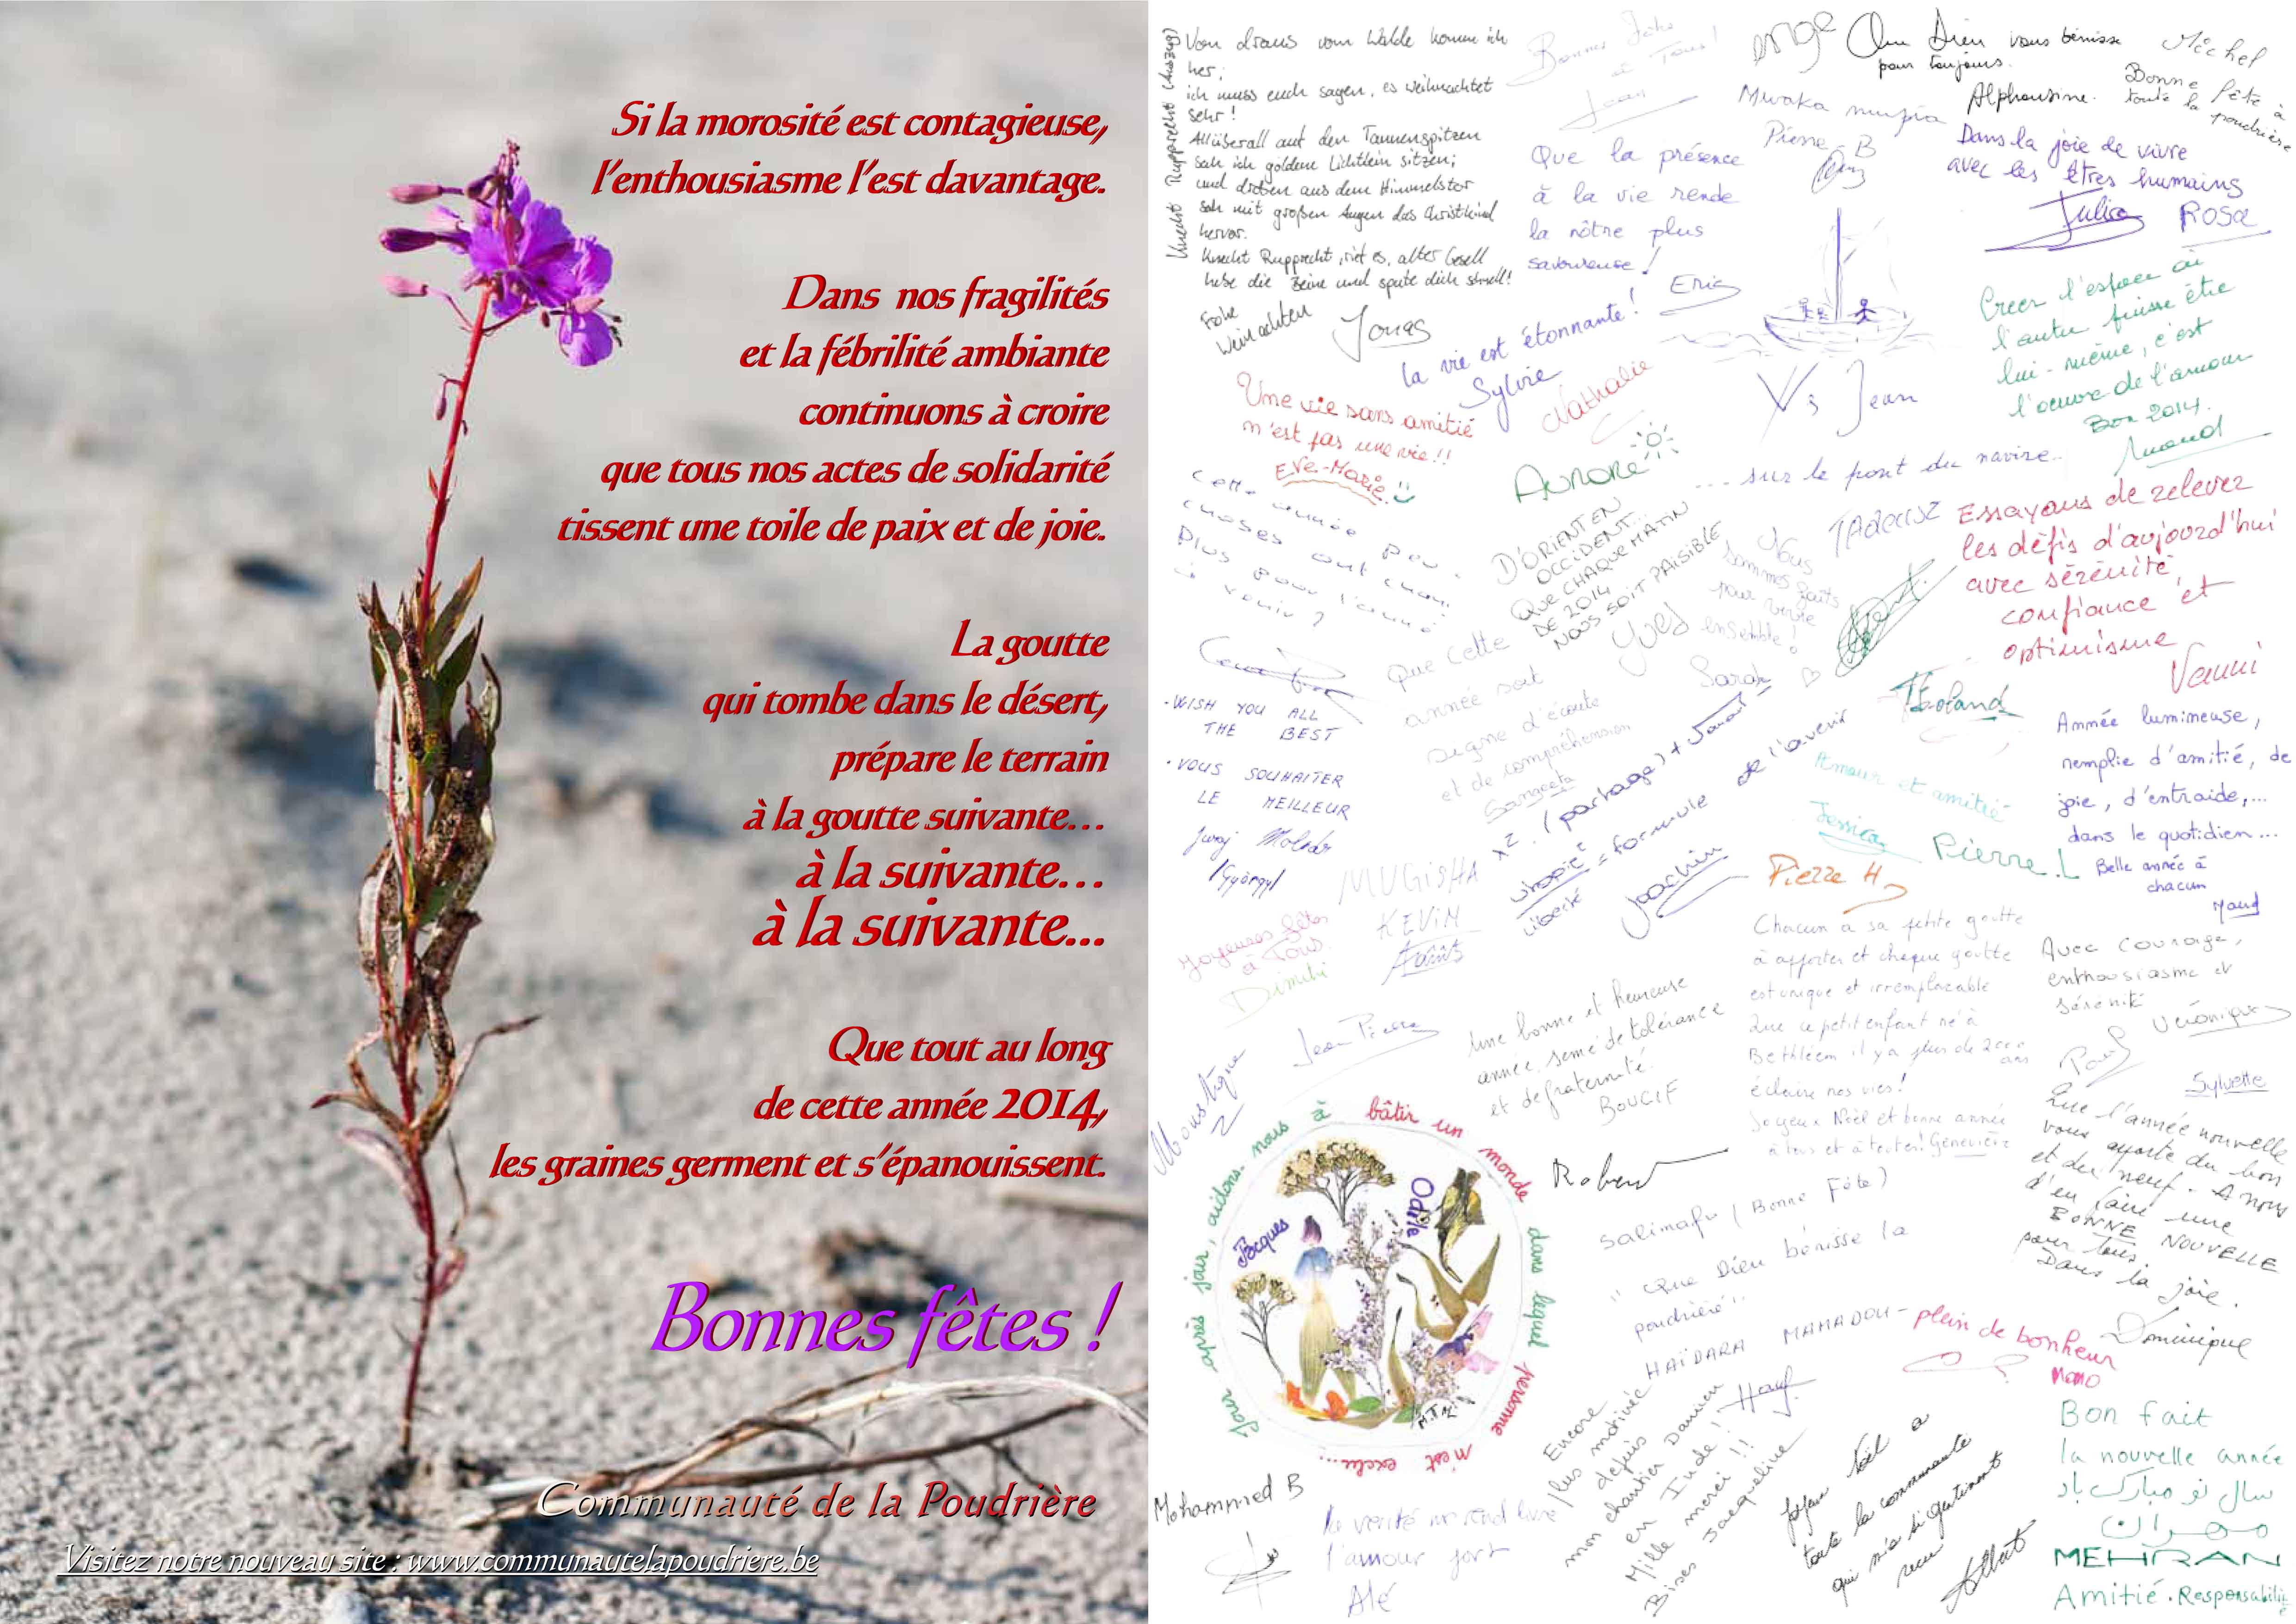 Si la morosité est contagieuse,
l'enthousiasme l'est davantage.
Dans nos fragilités
et la fébrilité ambiante
continuons à croire
que tous nos actes de solidarité
tissent une toile de paix et de joie.
La goutte
qui tombe dans le désert,
prépare le terrain
à la goutte suivante...
à la suivante...
à la suivante...
Que tout au long
de cette année 2014,
les graines germent et s'épanouissent.
Bonnes fêtes !
Communauté de la Poudrière
Visitez notre nouveau site : www.communautelapoudriere.be
Knecht Rupprecht (Auszug)
Von draus vom Walde komm ich
her;
ich muss euch sagen, es weihnachtet
sehr!
Allüberall auf den Tannenspitzen
sah ich goldene Lichtlein sitzen;
und droben aus dem Himmelstor
sah mit großen Augen das Christkind
hervor.
Knecht Rupprecht, rief es, alter Gesell
hebe die Beine und spute dich schnell!
Frohe
Weinachten
Jonas
Bonnes fêtes
à Tous !
Jean
Que Dieu vous bénisse
pour toujours.
Alphonsine.
Michel
Bonne fête à
toute la poudrière
Mwaka
Pierre B
Dans la joie de vivre
avec les êtres humains
Julia
ROSA
Que la présence
à la vie rende
la nôtre plus
savoureuse !
Eric
la vie est étonnante !
Sylvie
Nathalie
Une vie sans amitié
n'est pas une vie !!
Eve-Marie
Vs Jean
... sur le pont du navire..
TADEUSZ
Creer l'espace où
l'autre puisse être
lui-même, c'est
l'oeuvre de l'amour
Bon 2014.
Cette année peu
choses ont
Plus pour l'année
à venir ?
AURORE
D'ORIENT EN
OCCIDENT...
QUE CHAQUE MATIN
DE 2014
NOUS SOIT PAISIBLE
Yves
Nous
sommes faits
pour vivre
ensemble !
Sarah
Essayons de relever
les défis d'aujourd'hui
avec sérénité,
confiance et
optimisme
Vanni
Que cette
année soit
signe d'écoute
et de compréhension
Sangeeta
- WISH YOU ALL
THE BEST
- VOUS SOUHAITER
LE MEILLEUR
Juraj Molnár
/György/
utopie = formule de l'avenir
liberté
Joachim
Année lumineuse,
remplie d'amitié, de
joie, d'entraide,...
dans le quotidien...
Belle année à
chacun
Maud
Amour et amitié
Jessica
Pierre.L
Pierre H
MUGISHA
KEVIN
Joyeuses fêtes
à Tous.
Dimitri
Jean Pierre
Moustique
Une bonne et heureuse
année, semé de tolérance
et de fraternité.
BOUCIF
Chacun a sa petite goutte
à apporter et chaque goutte
est unique et irremplacable
Que ce petit enfant né à
Bethléem il y a plus de 2000 ans
éclaire nos vies !
Joyeux Noël et bonne année
à tous et à toutes! Geneviève
Avec courage,
enthousiasme et
sérénité
Véronique
Paul
Sylvette
Que l'année nouvelle
vous apporte du bon
et du neuf. A nous
d'en faire une
BONNE NOUVELLE
pour tous.
Dans la joie.
Dominique
Robert
Salimafo (Bonne Fête)
" Que Dieu bénisse la
poudrière "
HAÏDARA MAMADOU
plein de bonheur
MOMO
Jour après jour, aidons-nous à bâtir un monde dans lequel personne n'est exclu...
Jacques
Odile
M.T.M.
Mohammed B
la vérité nous rend livre
l'amour fort
Alé
Encore
plus motivée
depuis
mon chantier Damien
en Inde !
Mille merci !!
Bises Jacqueline
Joyeux Noël à
toute la communauté
qui m'a si gentiment
reçu
Albert
Bon fait
la nouvelle année
سال نو مبارک باد
مهران
MEHRAN
Amitié . Responsabilité